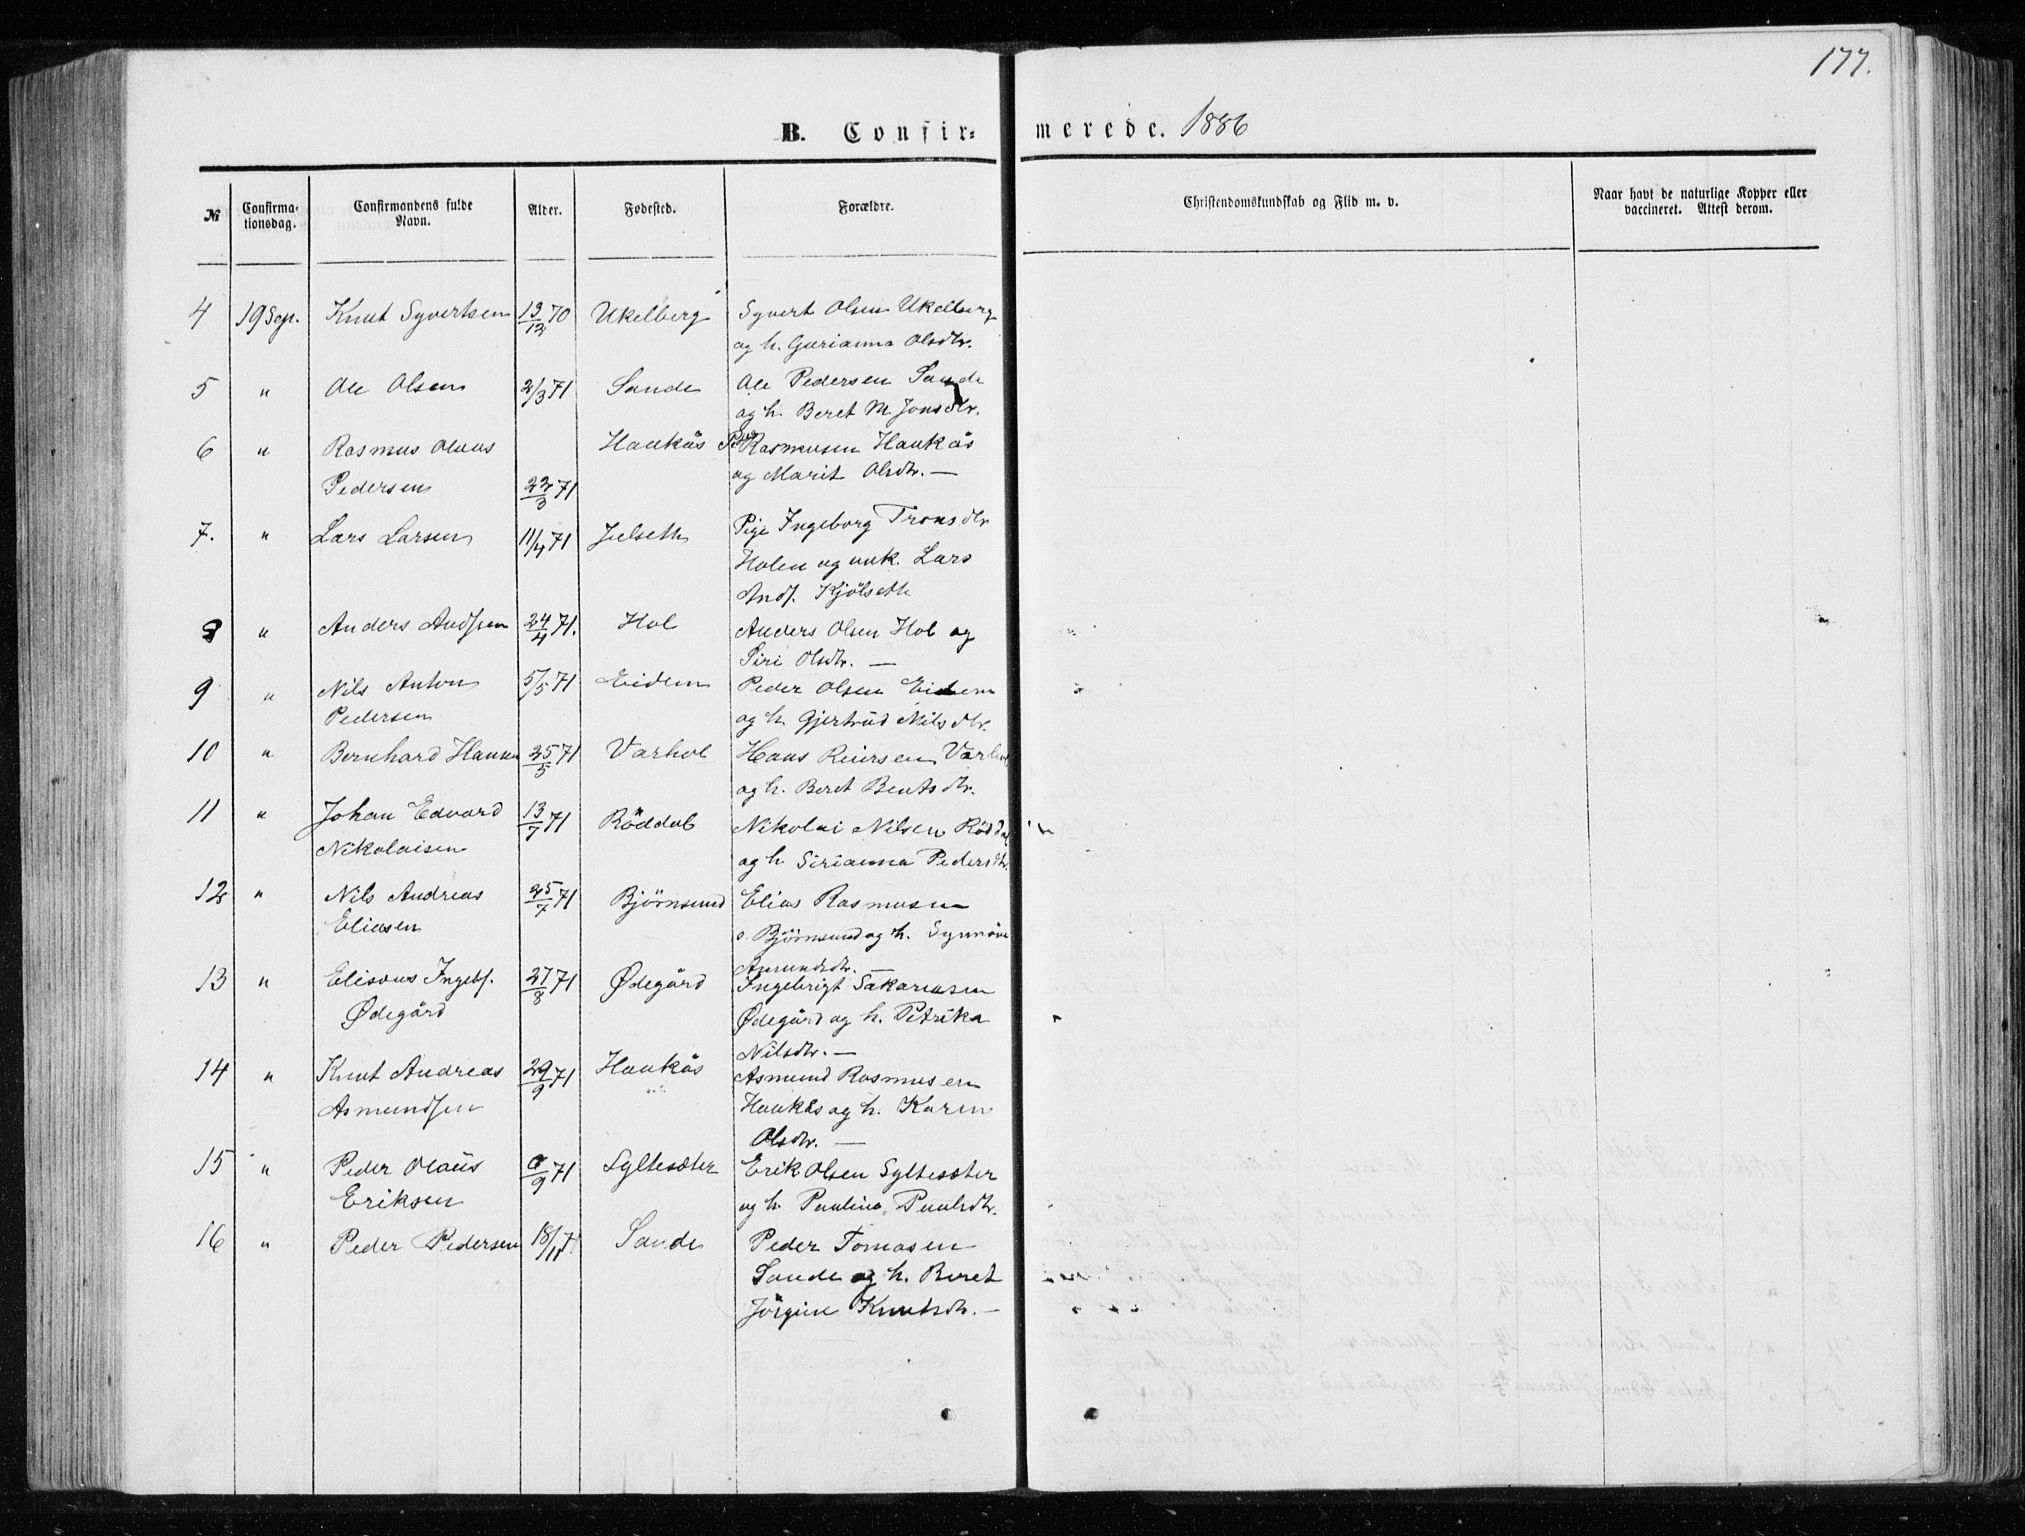 177.
B. Confir= merede. 1886
№
Confirma-
tionsdag.
Confirmandens fulde
Navn.
Alder.
Fødested.
Forældre.
Christendomskundskab og Flid m. v.
Naar havt de naturlige Kopper eller
vaccineret. Attest derom.
4 19 Sep. Knut Syvertsen 13/12 70 Ukelberg Syvert Olsen Ukelberg
og h. Gurianna Olsdtr.
5 " Ole Olsen 2/3 71 Sande Ole Pedersen Sande
og h. Beret M. Jonsdtr.
6 " Rasmus Olaus Haukås Peder Rasmusen Haukås
Pedersen 22/3 71 og Marit Olsdtr. —
7. " Lars Larsen 11/4 71 Julseth Pige Ingeborg Tronsdtr
Holen og unk. Lars
Ands. Kjölseth
8 " Anders Andsen 24/4 71. Hol Anders Olsen Hol og
Siri Olsdtr. —
9 " Nils Anton 5/5 71 Eidem Peder Olsen Eidem
Pedersen og h. Gjertrud Nilsdtr.
10 " Bernhard Hansen 25/5 71 Varhol Hans Reiersen Varhol
og h. Beret Bentsdtr.
11 " Johan Edvard 13/7 71 Röddal Nikolai Nilsen Röddal
Nikolaisen og h. Sirianna Pedersdtr.
12 " Nils Andreas 25/7 71 Bjørnsund Elias Rasmusen
Eliasen Bjørnsund og h. Synnöve
Amundsdtr. —
13 " Elisæus Ingebs. 27/8 71 Ødegård Ingebrigt Sakariasen
Ødegård Ødegård og h. Petrika
Nilsdtr. —
14 " Knut Andreas 29/9 71 Haukås Asmund Rasmusen
Asmundsen Haukås og h. Karen
Olsdtr. —
15 " Peder Olaus /9 71 Syltesæter Erik Olsen Syltesæter
Eriksen og h. Paulina Paulsdtr.
16 " Peder Pedersen 18/11 71 Sande Peder Tomasen
Sande og h. Beret
Jörgine Knutsdtr. —